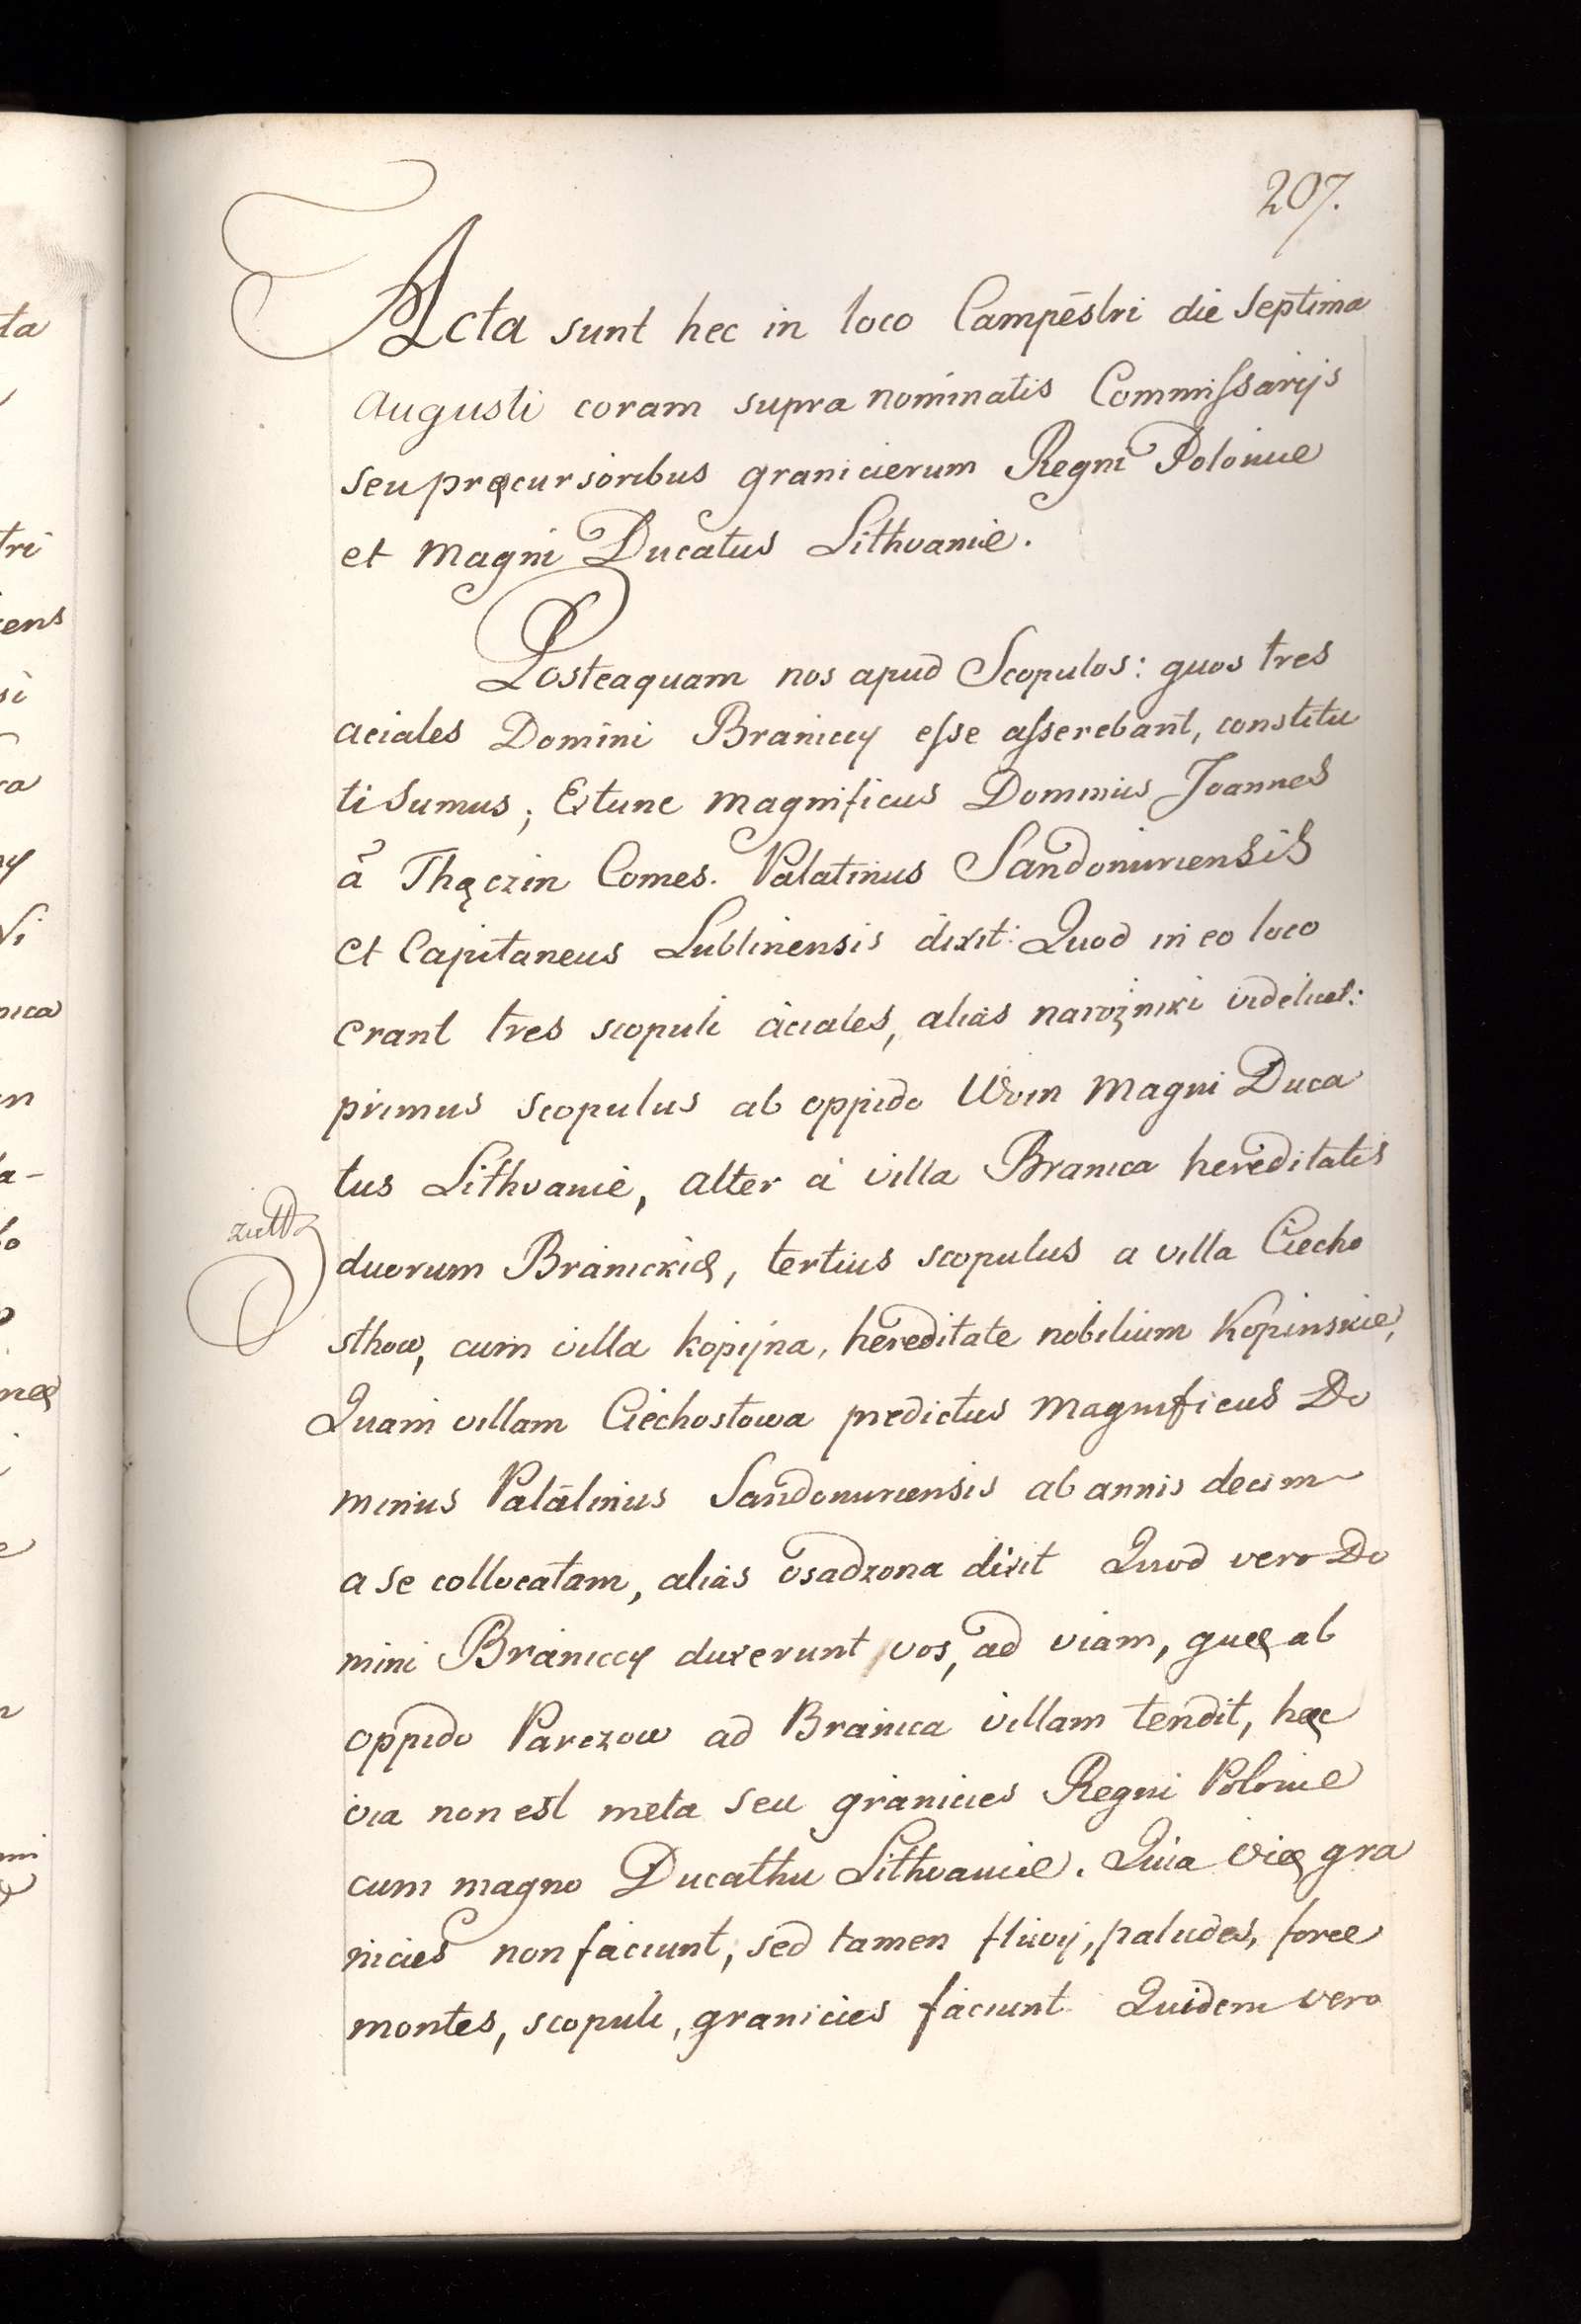 207.
Acta sunt hec in loco Campestri die septima
Augusti coram supra nominatis Commissarijs
seu pręcursoribus granicierum Regni Poloniae
et Magni Ducatus Lithvaniæ.
Posteaquam nos apud Scopulos: quos tres
aciales Domini Braniccy esse asserebant, constitu
ti sumus; Extunc magnificus Dominus Joannes
à Thęczin Comes. Palatinus Sandomiriensis
et Capitaneus Lublinensis dixit: Quod in eo loco
erant tres scopuli aciales, alias narożniki videlicet:
primus scopulus ab oppido Woin Magni Duca
tus Lithvaniæ, alter à villa Branica hereditatis
duorum Branickię, tertius scopulus a villa Ciecho
sthow, cum villa kopijna, hereditate nobilium Kopinskie,
Quam villam Ciechostowa predictus Magnificus Do
minus Palatinus Sandomiriensis ab annis decim
a se collocatam, alias osadzona dixit Quod vero Do
mini Braniccy duxerunt vos, ad viam, quę ab
oppido Parczow ad Branica villam tendit, hęc
via non est meta seu granicies Regni Poloniæ
cum magno Ducathu Lithvaniæ. Quia vię gra
nicies non faciunt, sed tamen fluvij, paludes,
montes, scopuli, granicies faciunt Quidem vero